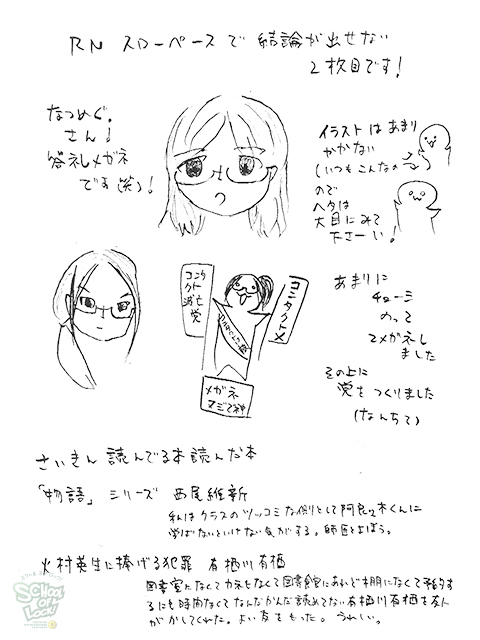 RN スローペースで 結論が出せない
2枚目です!
なつめぐ。
さん!
答えしメガネ
です(笑)!
イラストはあまり
かかない
(いつもこんなの)
ので
ヘタは
大目にみて
下さーい。
コンタクト滅亡党
コンタクト×
メガネ
マジで神
あまりに
チョーシ
のって
メガネし
ました
その上に
党をつくりました
(なんちて)
さいきん 読んでる本 読んだ本
「物語」シリーズ 西尾維新
私はクラスのツッコミな係りとして阿良々木くんに
学ばないといけない気がする。師匠とよぼう。
火村英生に捧げる犯罪 有栖川有栖
図書室になくてカネもなくて図書館にあれど棚になくて予約す
るにも時間なくてなんだかんだ読めてない有栖川有栖を友人
がかしてくれた。よい友をもった。うれしい。
SCHOOL OF LOCK!